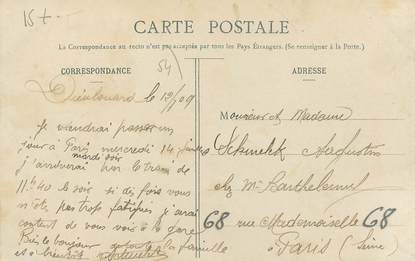 15 t-
CARTE POSTALE
La Correspondance au recto n'est pas acceptée par tous les Pays Étrangers. (Se renseigner à la Poste.)
CORRESPONDANCE
54)
ADRESSE
Dieulouard le 12/7 09
Je viendrai passer un
jour à Paris mercredi 14 juillet
mardi soir
j'arriverai par le train de
11h40 le soir si des fois vous
n'ete pas trop fatigués je serai
content de vous voir à la gare
Bien le bonjour a toute la famille
et a bientôt
Monsieur et Madame
Auguste
chez Mr Barthelemy
68 rue Mademoiselle 68
Paris (Seine)